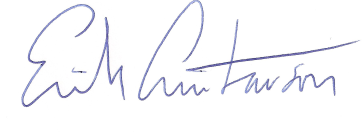 Erik Gustavson